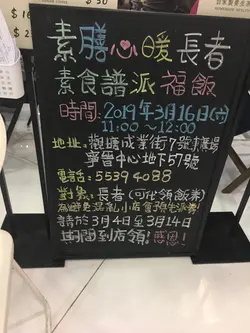 素膳心暖長者
素食譜派福飯
時間:2019年3月16日(六)
11:00～12:00
地址:觀塘成業街7號東廣場
寧晉中心地下57號
電話:5539 4088
對象:長者(可代領飯券)
為避免混亂,小店會預先派券!
請於3月4日至3月14日
期間到店領!感恩!